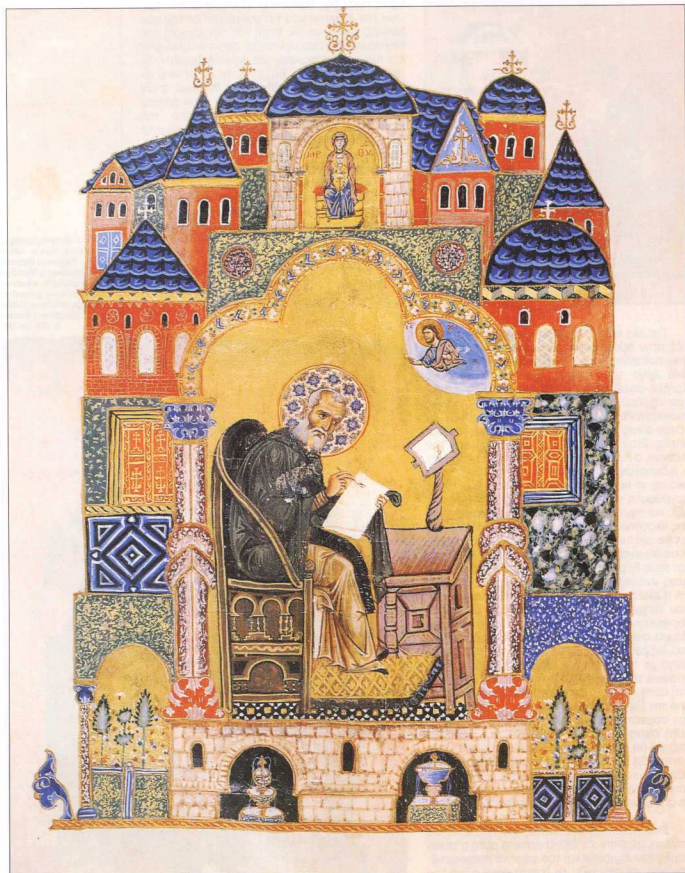 ΜΡ ΘΥ